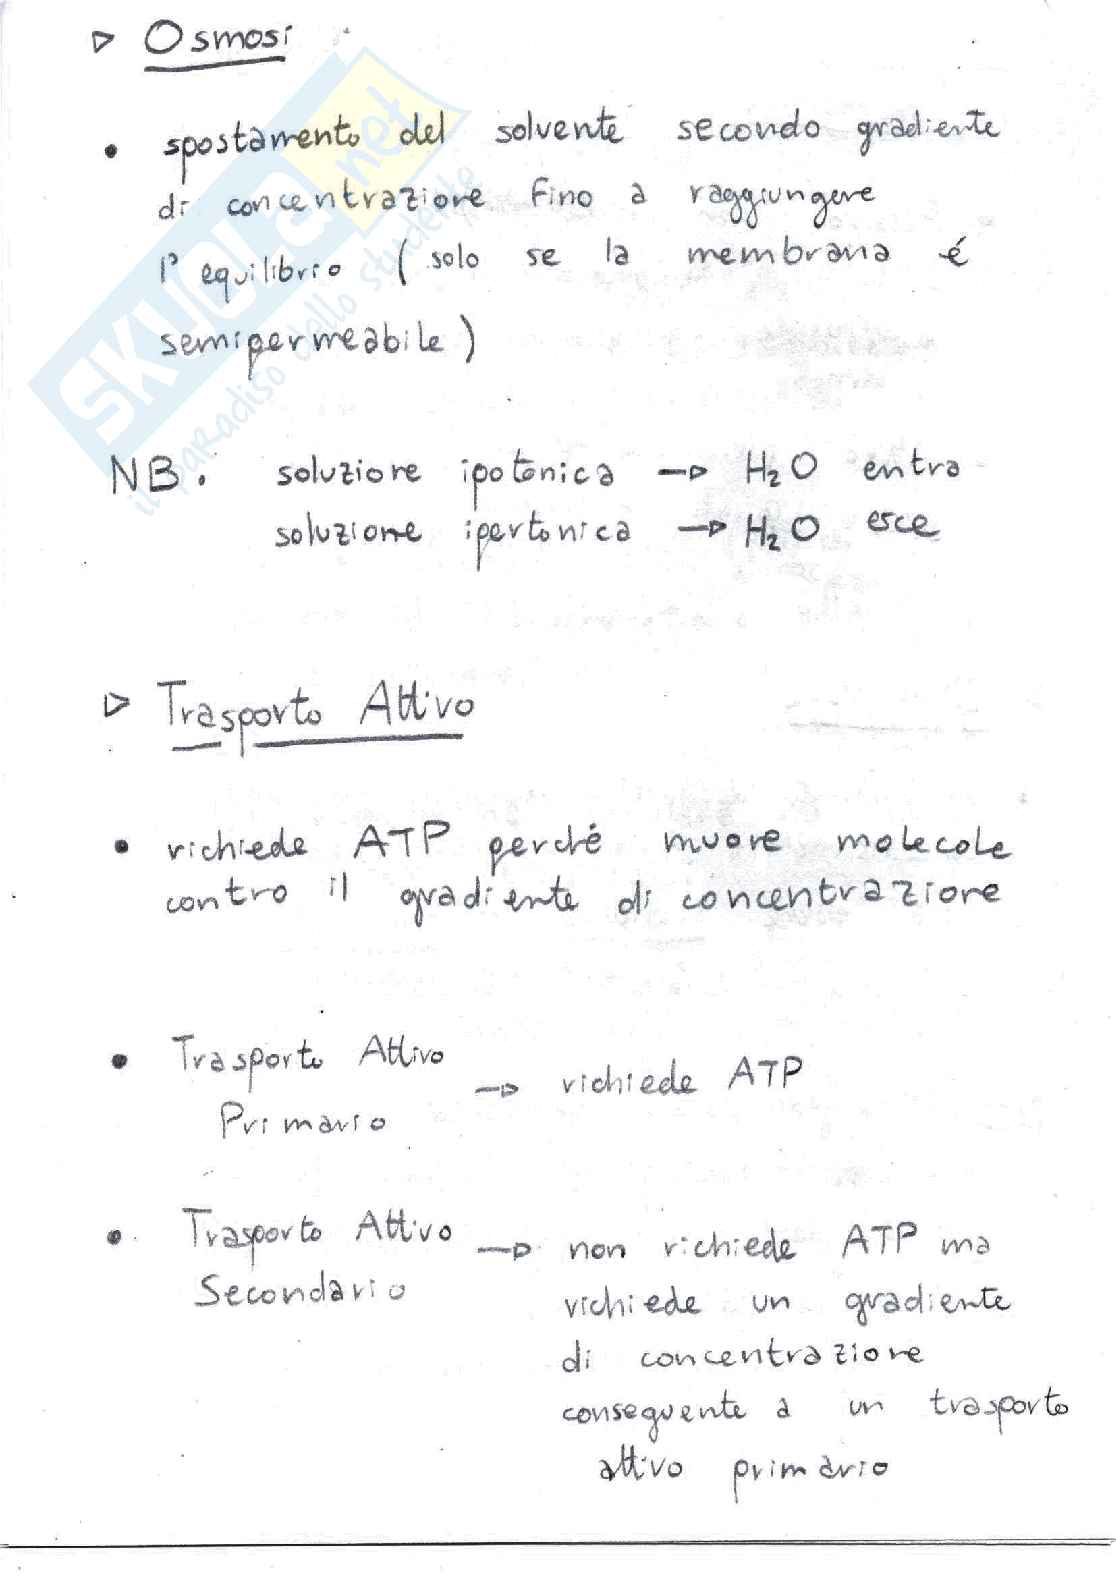 ▷ Osmosi
• spostamento del solvente secondo gradiente
di concentrazione fino a raggiungere
l'equilibrio (solo se la membrana é
semipermeabile)
NB. soluzione ipotonica → H₂O entra
soluzione ipertonica → H₂O esce
▷ Trasporto Attivo
• richiede ATP perché muove molecole
contro il gradiente di concentrazione
• Trasporto Attivo
Primario → richiede ATP
• Trasporto Attivo → non richiede ATP ma
Secondario richiede un gradiente
di concentrazione
conseguente a un trasporto
attivo primario
SKUOLA.net
il paradiso dello studente